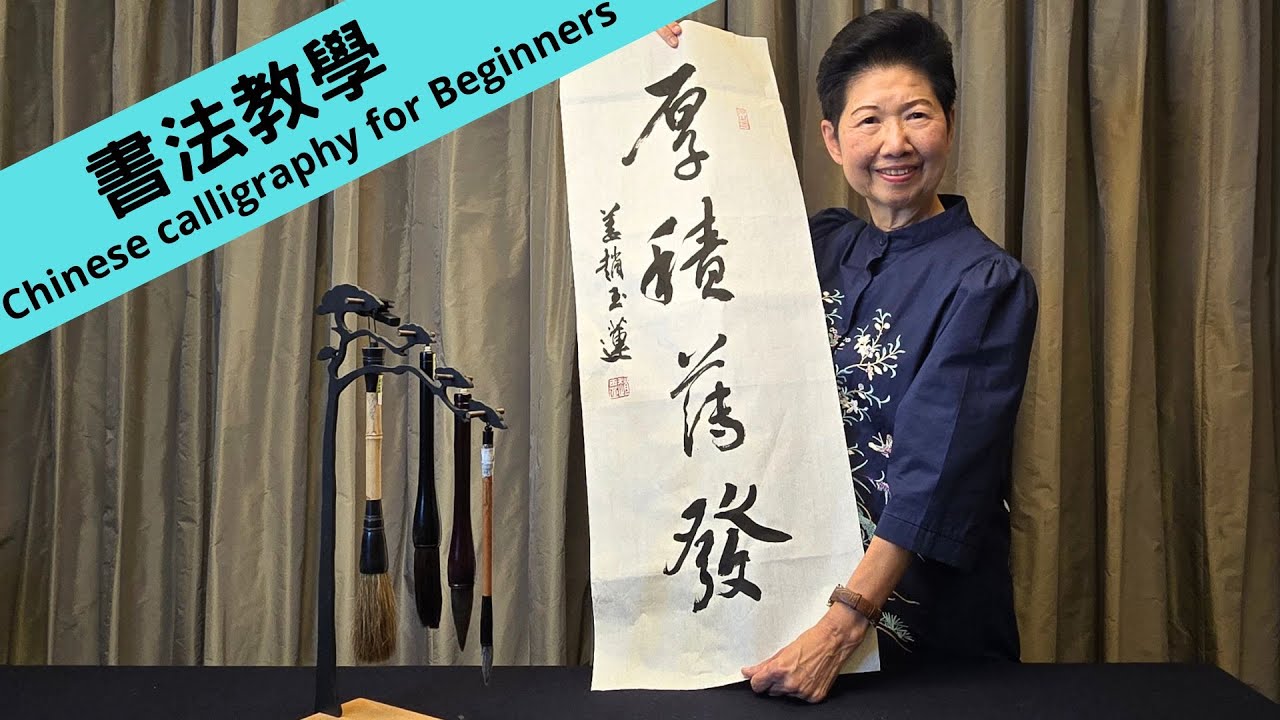 書法教學
Chinese calligraphy for Beginners
厚積薄發
姜趙玉蓮